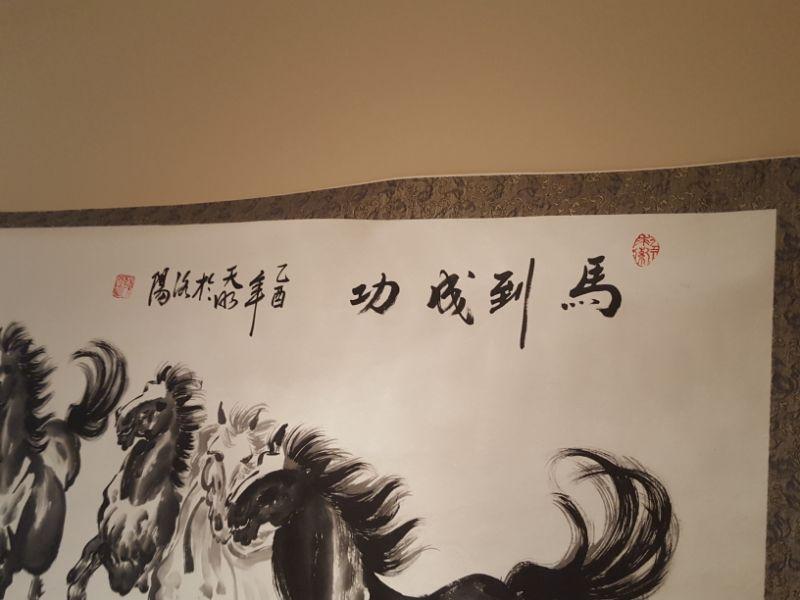 馬到成功
乙酉
年
天明
於洛
陽